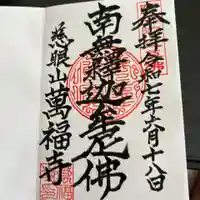 奉拝 令和七年六月十八日
南無釋迦牟尼佛
慈眼山 萬福寺